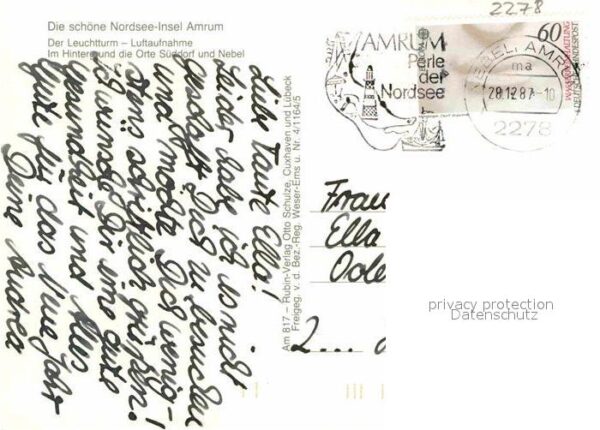 Die schöne Nordsee-Insel Amrum
Der Leuchtturm – Luftaufnahme
Im Hintergrund die Orte Süddorf und Nebel
Liebe Tante Ella!
Leider habe ich es nicht
geschafft Dich zu besuchen
und möchte Dich wenig-
stens schriftlich grüßen.
Ich wünsche Dir eine gute
Gesundheit und alles
Gute für das Neue Jahr
Deine Andrea
Am 817 – Rubin-Verlag Otto Schulze, Cuxhaven und Lübeck
Freigeg. v. d. Bez.-Reg. Weser-Ems u. Nr. 4/1164/5
2278
AMRUM
Perle
der
Nordsee
60
DEUTSCHE BUNDESPOST
NEBEL, AMRUM
ma
28.12.87-10
2278
Frau
Ella
2...
privacy protection
Datenschutz